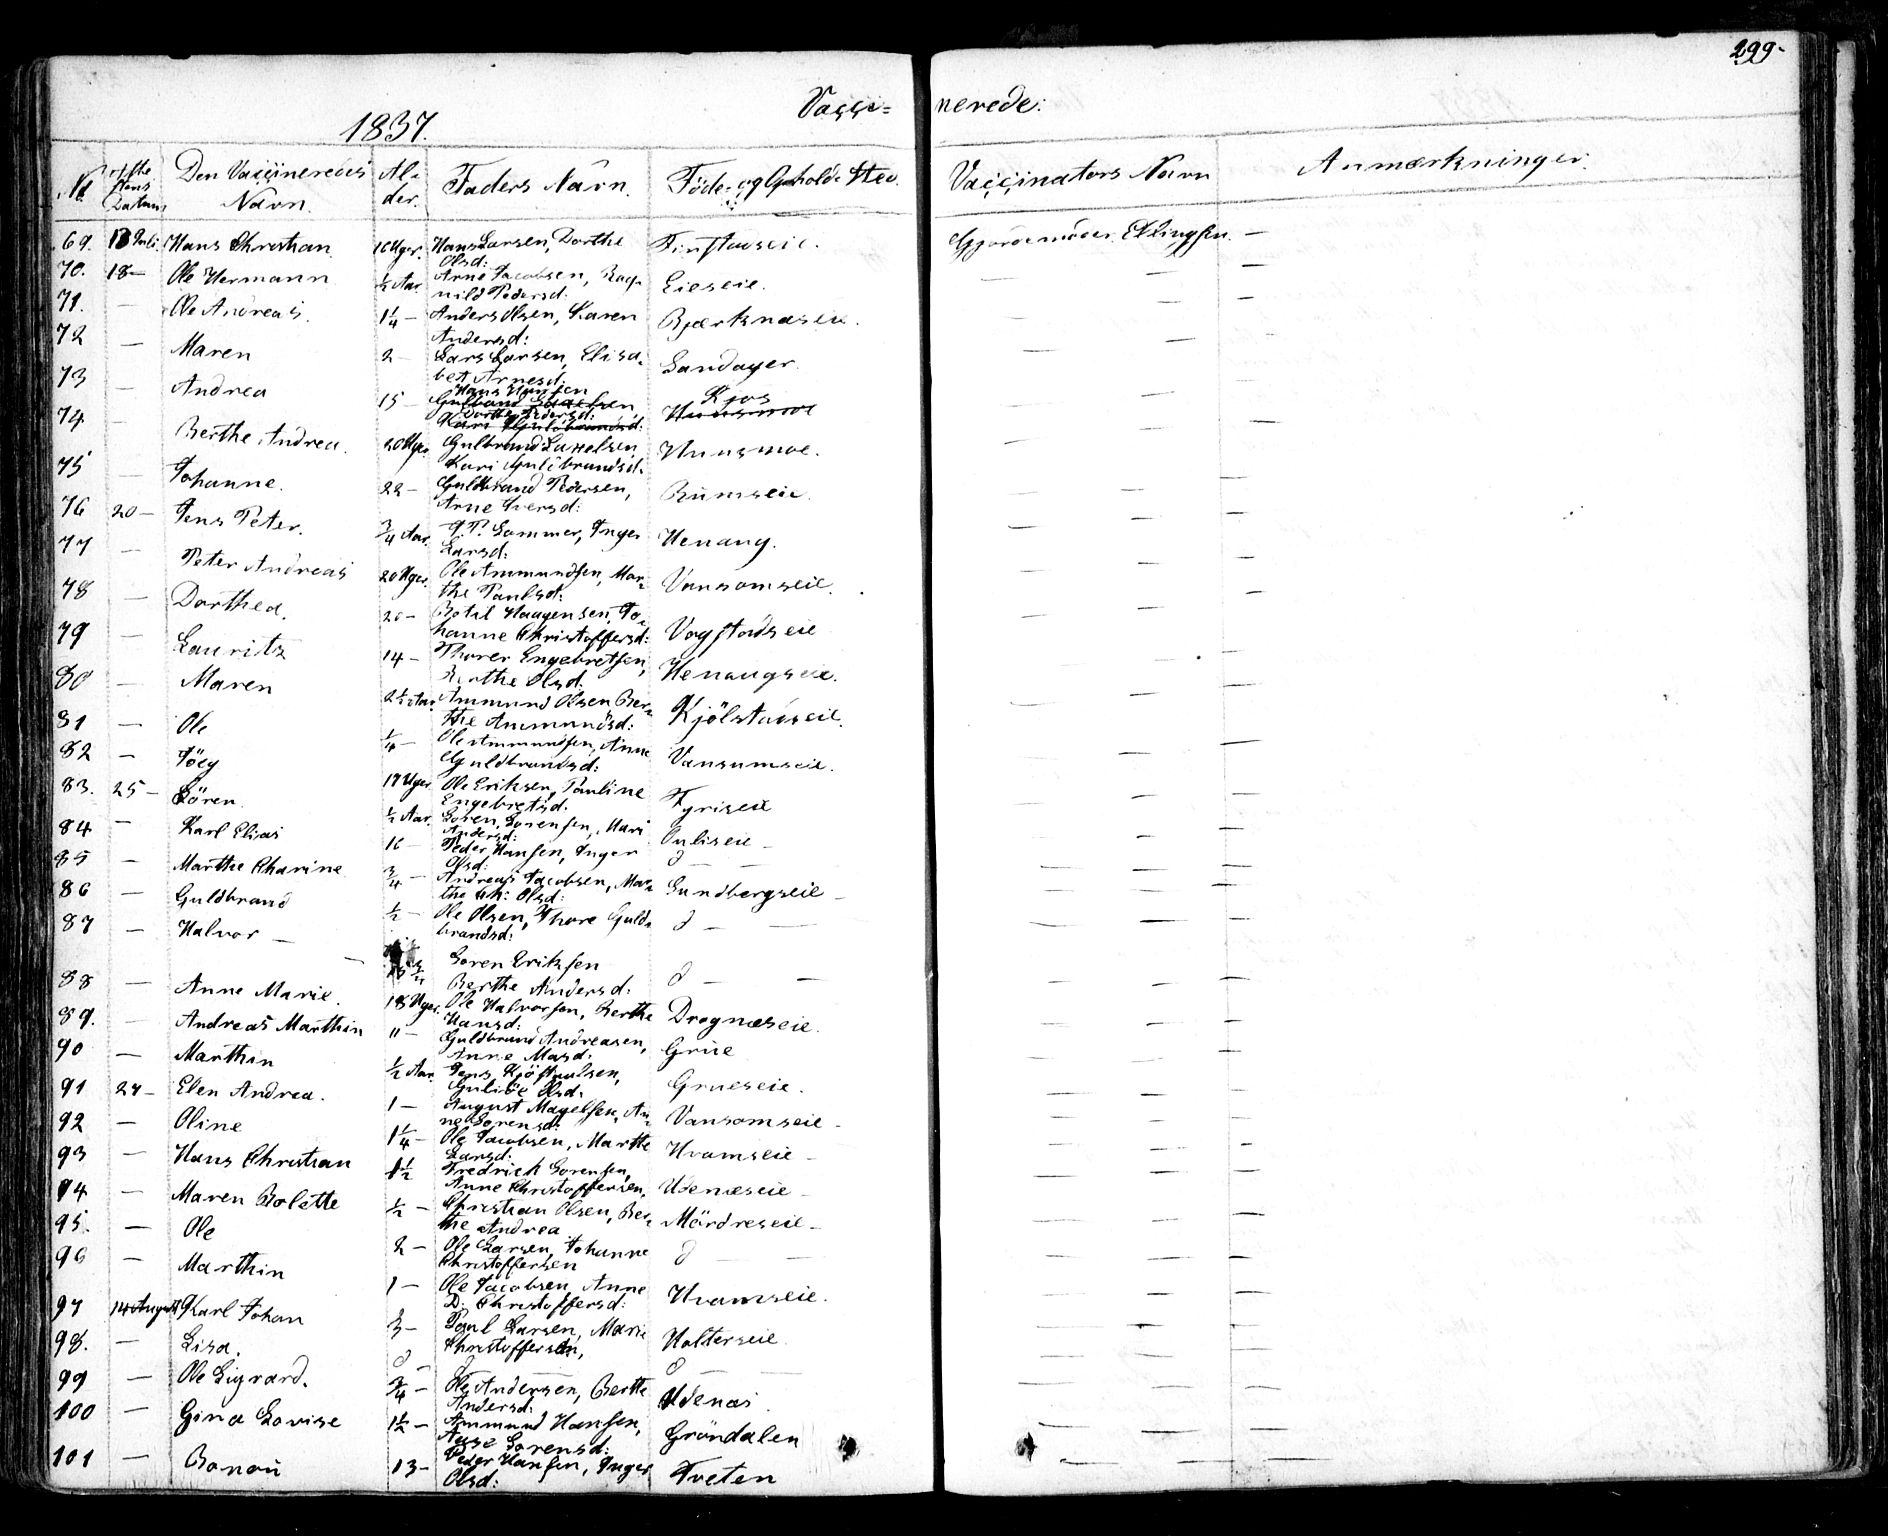 299-
Vacci= nerede:
1837.
Den Vaccineredes Navn. Al- der. Faders Navn. Føde- og Opholds Sted. Vaccinators Navn Anmærkninger.
69. 13 Juli. Hans Christian 16 Uger. Hans Larsen, Dorthe Olsd: Gjordemoder Ellingsen. —
70. 18 — Ole Hermann ½ Aar. Arne Jacobsen, Rag- nild Pedersd: Eieseie. — — —
71. — Ole Andreas. 1¼ — Anders Olsen, Karen Andersd: Bjærknæseie. — — —
72 — Maren 2 — Lars Larsen, Elisa- bet Arnesd: Sandager. — — —
73 — Andrea 15 — Hans Hansen Dorthe Pedersd: Kjos — — —
74 — Berthe Andrea. 20 Uger. Gulbrand Saxelsen, Kari Gulbrandsd: Huusmoe. — — —
75 — Johanne. 22 — Guldbrand Pedersen, Arne Iversd: — — —
76 20 — Jens Peter. ¾ Aar. J. P. Sommer, Inger Larsd: Henaug. — — —
77 — Peter Andreas 20 Uger. Ole Ammundsen, Mar- the Paulsd: Vansomseie. — — —
78 — Dorthea. 20 — Botil Haagensen, Jo- hanne Christoffersd: Vogstadseie — — —
79 — Lauritz 14 — Thorer Engebretsen, Berthe Olsd. Henaugseie. — — —
80 — Maren 2½ Aar Ammund Olsen Ber- the Ammundsd: Kjölstadseie. — — —
81 — Ole ¼ — Ole Ammundsen, Anne Guldbrandsd: Vansumseie. — — —
82 — 17 Uger Ole Eriksen, Pauline Engebretsd. Fyriseie — — —
83. 25 — Sören. ½ Aar. Soren Sorensen, Mari Andersd: Auliseie — — — —
84 — Karl Elias 16 — Peder Hansen, Inger Olsd: d — — — — —
85 — Marthe Charine ¾ — Andreas Jacobsen, Mar- the Ch: Olsd: Sundbergseie — — — —
86 — Guldbrand ½ — Ole Olsen, Thore Guld- brandsd: d — — — — —
87 — Halvor — Soren Eriksen Berthe Andersd: d — — — — —
88 — Anne Marie. 18 Uger. Ole Halvorsen, Berthe Hansd: Drognæseie. — — —
89. — Andreas Marthin 11 — Guldbrand Andreasen, Anne Masd: Grue — — —
90 — Marthin ½ Aar. Jens Kjöstaulsen, Olsd. Grueseie. — — —
91 27 — Elen Andrea. 1 — August Magelsen, An- ne Sorensd: Vansomseie — — — —
92 — Oline 1¼ — Ole Jacobsen, Marthe Larsd: Hvamseie — — — —
93 — Hans Christian 1½ Fredrich Sorensen, Anne Christoffersen, Udenæseie — — — —
94 — Maren Bolette ½ — Christian Olsen, Ber- the Andrea Mördreseie — — — —
95. — Ole 2 — Ole Larsen, Johanne Christoffersen d — — — — —
96 — Marthin 1 — Ole Jacobsen, Anne D: Christoffersd: Hvamseie. — — —
97 14 August Karl Johan ⅔ — Paul Larsen, Marie Christoffersen, Holterseie — — —
98. — Lisa. d — d — d — — — —
99 — Ole Sigvard. ¾ — Ole Andersen, Berthe Andersd: Udenæs — — —
100 — Gina Lovise 1½ — Ammund Hansen, Aase Sorensd: Gröndalen — — —
101 — 13 — Peder Hansen, Inger Olsd: Tveten — — —